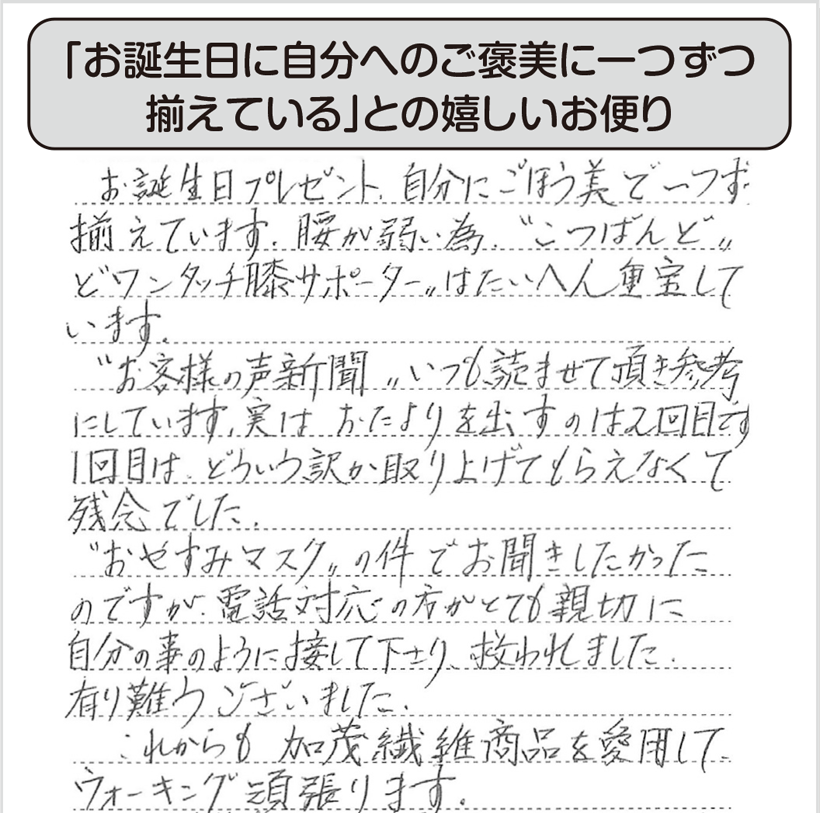 「お誕生日に自分へのご褒美に一つずつ
揃えている」との嬉しいお便り
お誕生日プレゼント、自分にごほう美で一つず
揃えています。腰が弱い為、〝こつばんど〟
どワンタッチ膝サポーター〟はたいへん重宝して
います。
〝お客様の声新聞〟いつも読ませて頂き参考
にしています。実は おたよりを出すのは2回目です
1回目は、どういう訳か取り上げてもらえなくて
残念でした。
〝おやすみマスク〟の件でお聞きしたかった
のですが、電話対応の方がとても親切に
自分の事のように接して下さり、救われました。
有り難うございました。
これからも 加茂繊維商品を愛用して
ウォーキング頑張ります。